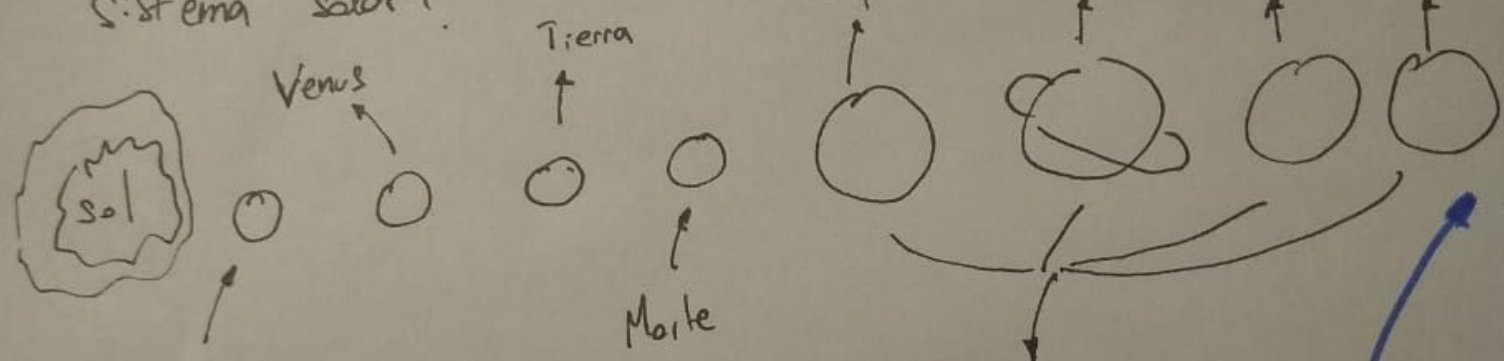 Sistema solar.
Tierra
Venus
sol
Marte